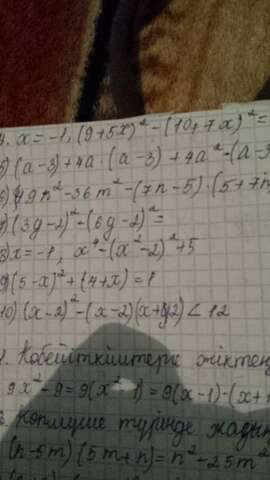 4. x = -1, (9+5x)² - (10+7x)² =
5) (a-3) + 4a · (a-3) + 4a² - (a-3
6) 49n² - 36m² - (7n-5) · (5+7n
7) (3y-2)² - (6y-2)² =
8) x = -1, x⁴ - (x²-2)² + 5
9) (5-x)² + (4+x) = 1
10) (x-2)² - (x-2)(x+2) < 12
1. Көбейткіштерге жіктең
9x² - 9 = 9(x² - 1) = 9(x-1)·(x+1
көпмүше түрінде жазың
(n-5m)(5m+n) = n² - 25m²